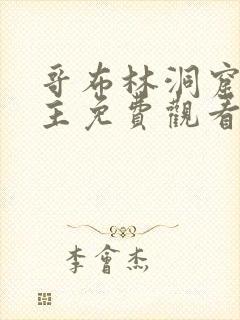 哥布林洞窟
主免費觀看
李會杰